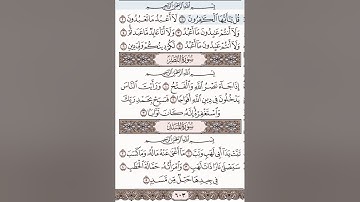 بِسْمِ ٱللَّهِ ٱلرَّحْمَٰنِ ٱلرَّحِيمِ
قُلْ يَٰٓأَيُّهَا ٱلْكَٰفِرُونَ ١ لَآ أَعْبُدُ مَا تَعْبُدُونَ ٢
وَلَآ أَنتُمْ عَٰبِدُونَ مَآ أَعْبُدُ ٣ وَلَآ أَنَا۠ عَابِدٌ مَّا عَبَدتُّمْ ٤
وَلَآ أَنتُمْ عَٰبِدُونَ مَآ أَعْبُدُ ٥ لَكُمْ دِينُكُمْ وَلِىَ دِينِ ٦
سُورَةُ النَّصْرِ
بِسْمِ ٱللَّهِ ٱلرَّحْمَٰنِ ٱلرَّحِيمِ
إِذَا جَآءَ نَصْرُ ٱللَّهِ وَٱلْفَتْحُ ١ وَرَأَيْتَ ٱلنَّاسَ
يَدْخُلُونَ فِى دِينِ ٱللَّهِ أَفْوَاجًا ٢ فَسَبِّحْ بِحَمْدِ رَبِّكَ
وَٱسْتَغْفِرْهُ إِنَّهُۥ كَانَ تَوَّابًۢا ٣
سُورَةُ المَسَدِ
بِسْمِ ٱللَّهِ ٱلرَّحْمَٰنِ ٱلرَّحِيمِ
تَبَّتْ يَدَآ أَبِى لَهَبٍ وَتَبَّ ١ مَآ أَغْنَىٰ عَنْهُ مَالُهُۥ وَمَا كَسَبَ ٢
سَيَصْلَىٰ نَارًا ذَاتَ لَهَبٍ ٣ وَٱمْرَأَتُهُۥ حَمَّالَةَ ٱلْحَطَبِ ٤
فِى جِيدِهَا حَبْلٌ مِّن مَّسَدٍۭ ٥
٦٠٣